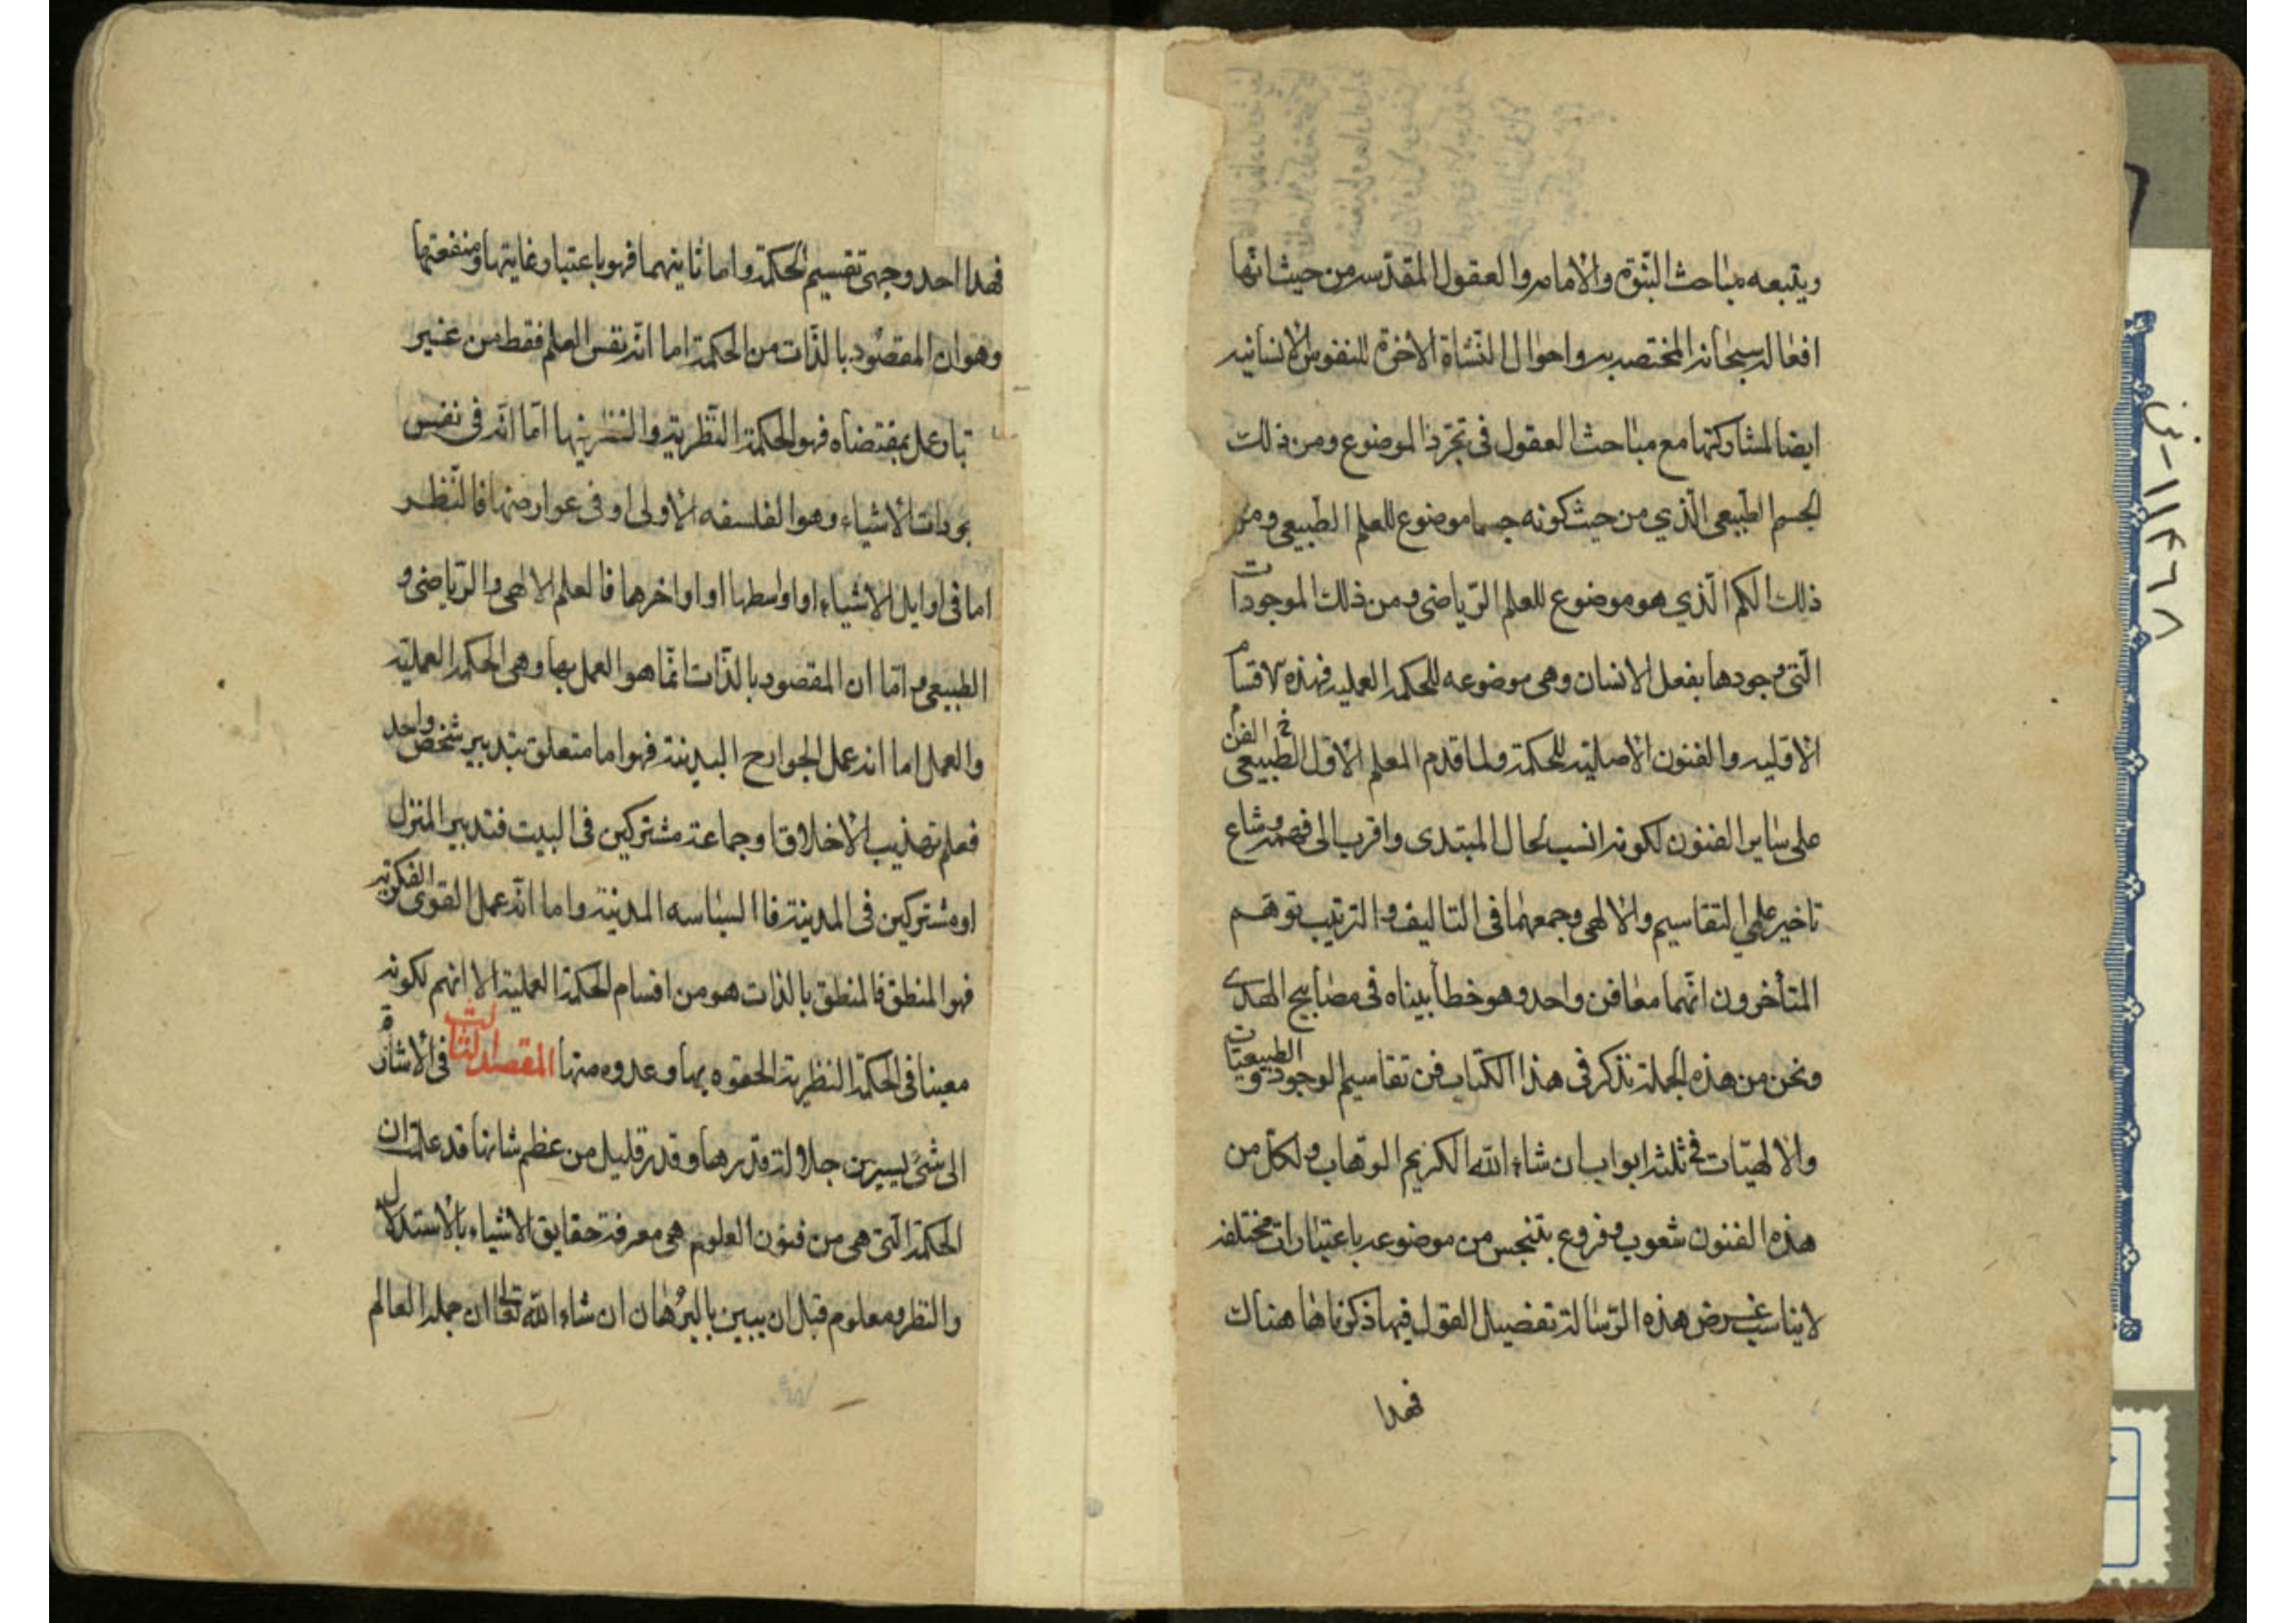 ويتبعه مباحث النبوة والامامه والعقول المقدسه من حيث انها
افعاله سبحانه المختصه به واحوال النشاة الاخرة للنفوس الانسانيه
ايضا لمشاركتها مع مباحث العقول فى تجرد الموضوع ومن ذلك
الجسم الطبيعى الذي من حيث كونه جسما موضوع للعلم الطبيعى ومن
ذلك الكم الذي هو موضوع للعلم الرياضى ومن ذلك الموجودات
التى وجودها بفعل الانسان وهى موضوعه للحكمه العمليه فهذه الاقسام
الاوليه والفنون الاصليه للحكمة ولما قدم المعلم الاول الفن الطبيعى
على ساير الفنون لكونه انسب لحال المبتدى واقرب الى فهمه وشاع
تاخير علمى التقاسيم والالهى وجمعهما فى التاليف والترتيب توهم
المتأخرون انهما معا فن واحد وهو خطأ بيناه فى مصابيح الهدى
ونحن من هذه الجملة نذكر فى هذا الكتاب فن تقاسيم الوجود والطبيعيات
والالهيات فى ثلثه ابواب ان شاء الله الكريم الوهاب ولكل من
هذه الفنون شعوب وفروع بتنجس من موضوعه باعتبارات مختلفه
لايناسب غرض هذه الرسالة تفصيل القول فيها ذكرناها هناك
فهذا
فهذا احد وجهى تقسيم الحكمة واما ثانيهما فهو باعتبار غايتها ومنفعتها
وهو ان المقصود بالذات من الحكمة اما انه نفس العلم فقط من غير
عمل بمقتضاه فهو الحكمة النظرية والنظر فيها اما انه فى نفس
الاشياء وهو الفلسفه الاولى او فى عوارضها فالنظر
اما فى اوايل الاشياء او اواسطها او اواخرها فالعلم الالهى والرياضى و
الطبيعى واما ان المقصود بالذات انما هو العمل بها وهى الحكمة العمليه
والعمل اما انه عمل الجوارح البدنية فهو اما متعلق بتدبير شخص واحد
فعلم تهذيب الاخلاق او جماعة مشتركين فى البيت فتدبير المنزل
او مشتركين فى المدينة فاالسياسه المدنية واما انه عمل القوى الفكرية
فهو المنطق فالمنطق بالذات هو من اقسام الحكمة العملية الا انهم لكونه
معينا فى الحكمة النظرية الحقوه بها وعدوه منها المقصد الثالث فى الاشارة
الى شئ يسير من جلالة قدرها وقدر قليل من عظم شانها قد علمت ان
الحكمة التى هى من فنون العلوم هى معرفة حقايق الاشياء بالاستدلال
والنظر ومعلوم قبل ان يبين بالبرهان ان شاء الله تعالى ان جملة العالم
١١٢٦٨-ض